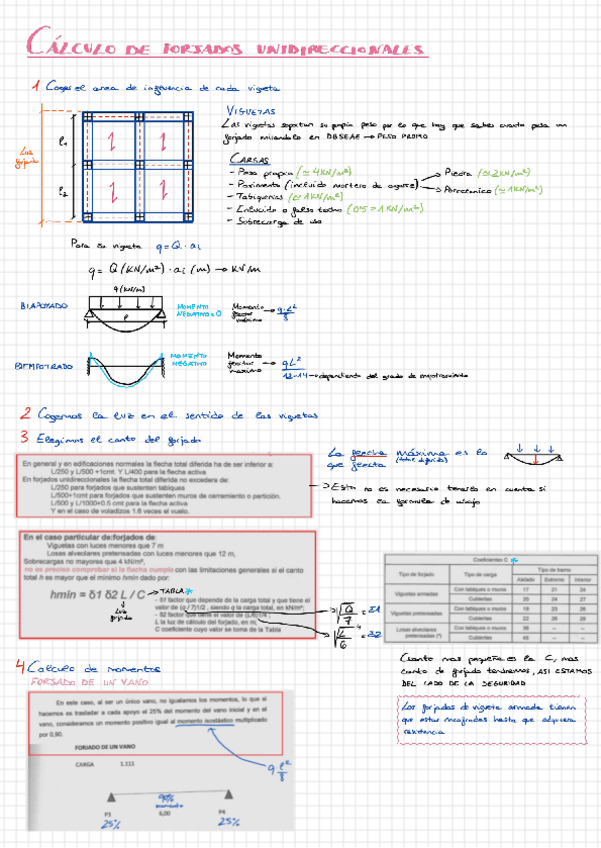 CÁLCULO DE FORJADOS UNIDIRECCIONALES
1 Coger el area de influencia de cada vigueta
Luz forjado
l1
l2
VIGUETAS
Las viguetas soportan su propio peso por lo que hay que saber cuanto pesa un
forjado mirandolo en DBSEAE → PESO PROPIO
CARGAS
- Peso propio (≈ 4KN/m²)
- Pavimento (incluido mortero de agarre)
→ Piedra (≈ 2KN/m²)
→ Porcelanico (≈ 1KN/m²)
- Tabiquerias (≈ 1KN/m²)
- Enlucido o falso techo (0'5 ÷ 1KN/m²)
- Sobrecarga de uso
Para su vigueta q = Q · ai
q = Q (KN/m²) · ai (m) → KN/m
BIAPOYADO
q (KN/m)
l
MOMENTO
NEGATIVO = 0
Momento
flector
máximo
→ q·l²/8
BIEMPOTRADO
MOMENTO
NEGATIVO
Momento
flector
maximo
ql²/12-14 → dependiendo del grado de empotramiento
2 Cogemos la luz en el sentido de las viguetas
3 Elegimos el canto del forjado
En general y en edificaciones normales la flecha total diferida ha de ser inferior a:
L/250 y L/500 +1cmt. Y L/400 para la flecha activa
En forjados unidireccionales la flecha total diferida no excedera de:
L/250 para forjados que sustenten tabiques
L/500+1cmt para forjados que sustenten muros de cerramiento o partición.
L/500 y L/1000+0.5 cmt para la flecha activa
Y en el caso de voladizos 1.6 veces el vuelo.
La flecha máxima es la
(total diferida)
que flecta
→ Esto no es necesario tenerlo en cuenta si
hacemos la formula de abajo
En el caso particular de:forjados de:
Viguetas con luces menores que 7 m
Losas alveolares pretensadas con luces menores que 12 m,
Sobrecargas no mayores que 4 kN/m²,
no es preciso comprobar si la flecha cumple con las limitaciones generales si el canto
total h es mayor que el mínimo hmin dado por:
hmin = δ1 δ2 L / C
→ TABLA *
Luz
forjado
- δ1 factor que depende de la carga total y que tiene el
valor de (q / 7)1/2 , siendo q la carga total, en kN/m²;
- δ2 factor que tiene el valor de (L/6)1/4 ;
L la luz de cálculo del forjado, en m;
C coeficiente cuyo valor se toma de la Tabla
√(Q/7) = δ1
⁴√(L/6) = δ2
Coeficientes C *
Tipo de forjado Tipo de carga Tipo de tramo
Aislado Extremo Interior
Viguetas armadas Con tabiques o muros 17 21 24
Cubiertas 20 24 27
Viguetas pretensadas Con tabiques o muros 19 23 26
Cubiertas 22 26 29
Losas alveolares pretensadas (*) Con tabiques o muros 36 – –
Cubiertas 45 – –
Cuanto mas pequeña es la C, mas
canto de forjado tendremos, ASI ESTAMOS
DEL LADO DE LA SEGURIDAD
Los forjados de vigueta armada tienen
que estar
hasta que adquiera
resistencia
4 Calculo de momentos
FORJADO DE UN VANO
En este caso, al ser un único vano, no igualamos los momentos, lo que sí
hacemos es trasladar a cada apoyo el 25% del momento del vano inicial y en el
vano, consideramos un momento positivo igual al momento isostático multiplicado
por 0,90.
FORJADO DE UN VANO
CARGA 1.111
q l²/8
90%
momento
P3 6,00 P4
25% 25%